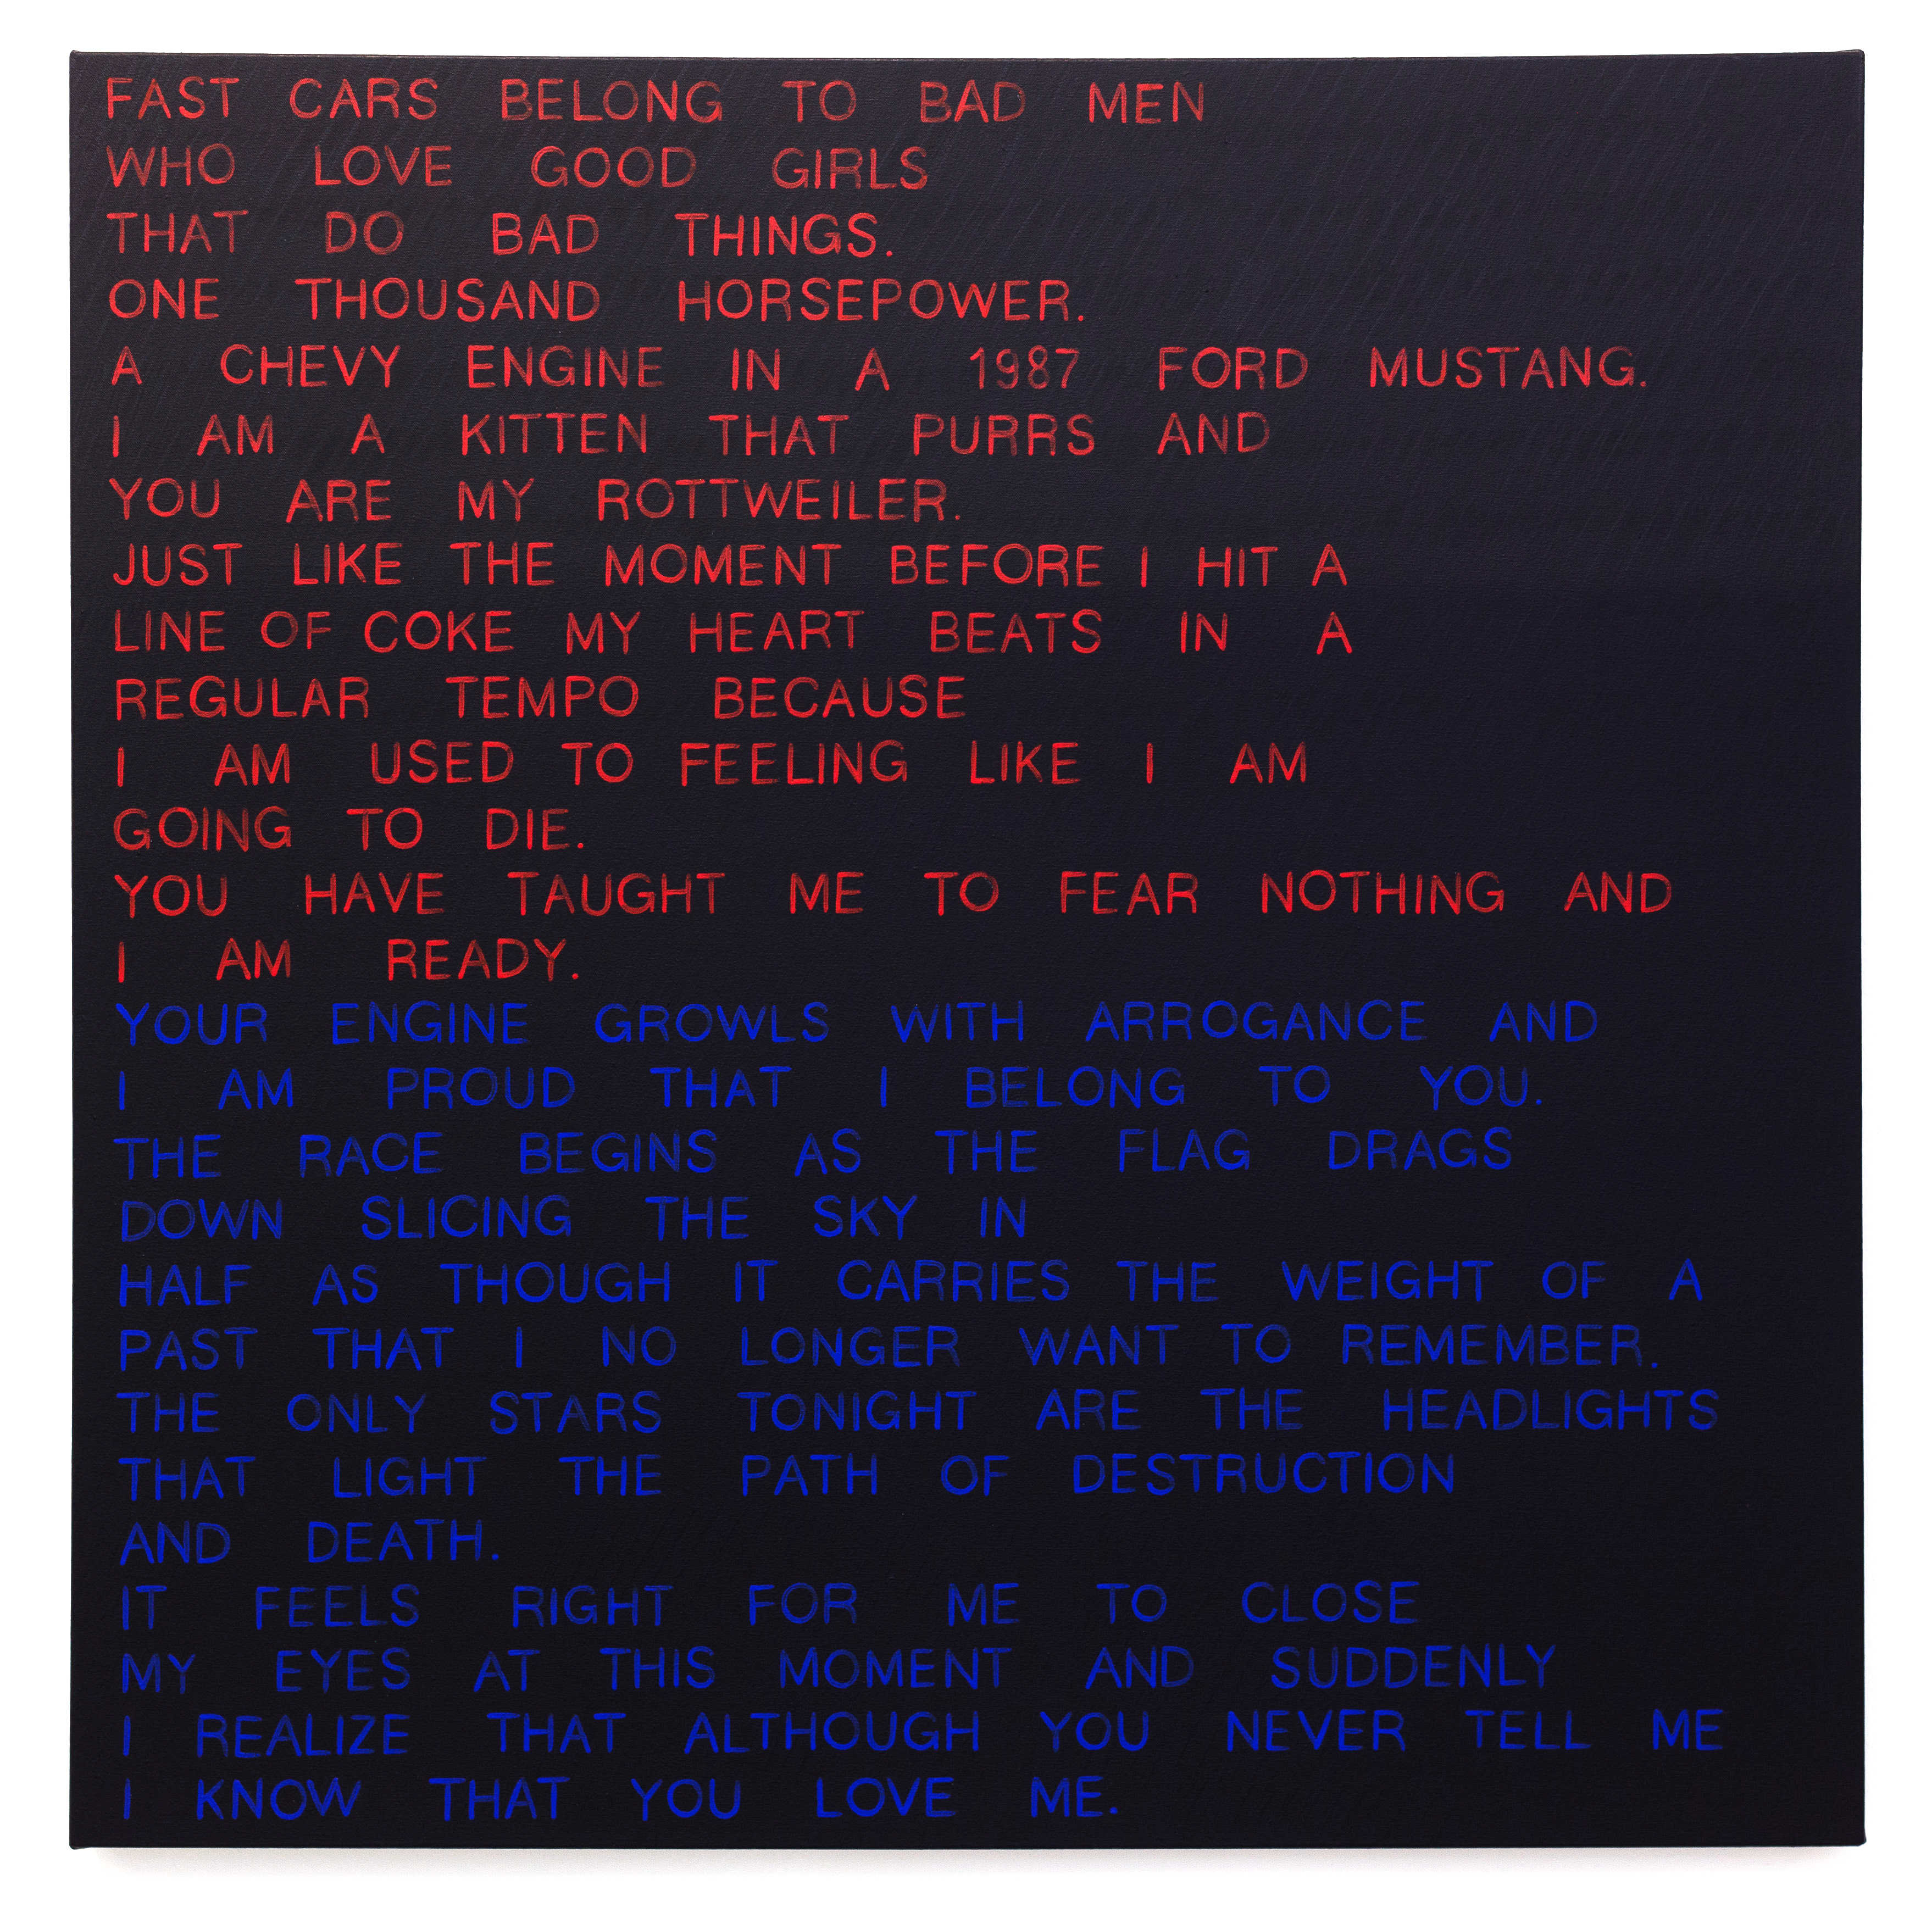 FAST CARS BELONG TO BAD MEN
WHO LOVE GOOD GIRLS
THAT DO BAD THINGS.
ONE THOUSAND HORSEPOWER.
A CHEVY ENGINE IN A 1987 FORD MUSTANG.
I AM A KITTEN THAT PURRS AND
YOU ARE MY ROTTWEILER.
JUST LIKE THE MOMENT BEFORE I HIT A
LINE OF COKE MY HEART BEATS IN A
REGULAR TEMPO BECAUSE
I AM USED TO FEELING LIKE I AM
GOING TO DIE.
YOU HAVE TAUGHT ME TO FEAR NOTHING AND
I AM READY.
YOUR ENGINE GROWLS WITH ARROGANCE AND
I AM PROUD THAT I BELONG TO YOU.
THE RACE BEGINS AS THE FLAG DRAGS
DOWN SLICING THE SKY IN
HALF AS THOUGH IT CARRIES THE WEIGHT OF A
PAST THAT I NO LONGER WANT TO REMEMBER.
THE ONLY STARS TONIGHT ARE THE HEADLIGHTS
THAT LIGHT THE PATH OF DESTRUCTION
AND DEATH.
IT FEELS RIGHT FOR ME TO CLOSE
MY EYES AT THIS MOMENT AND SUDDENLY
I REALIZE THAT ALTHOUGH YOU NEVER TELL ME
I KNOW THAT YOU LOVE ME.